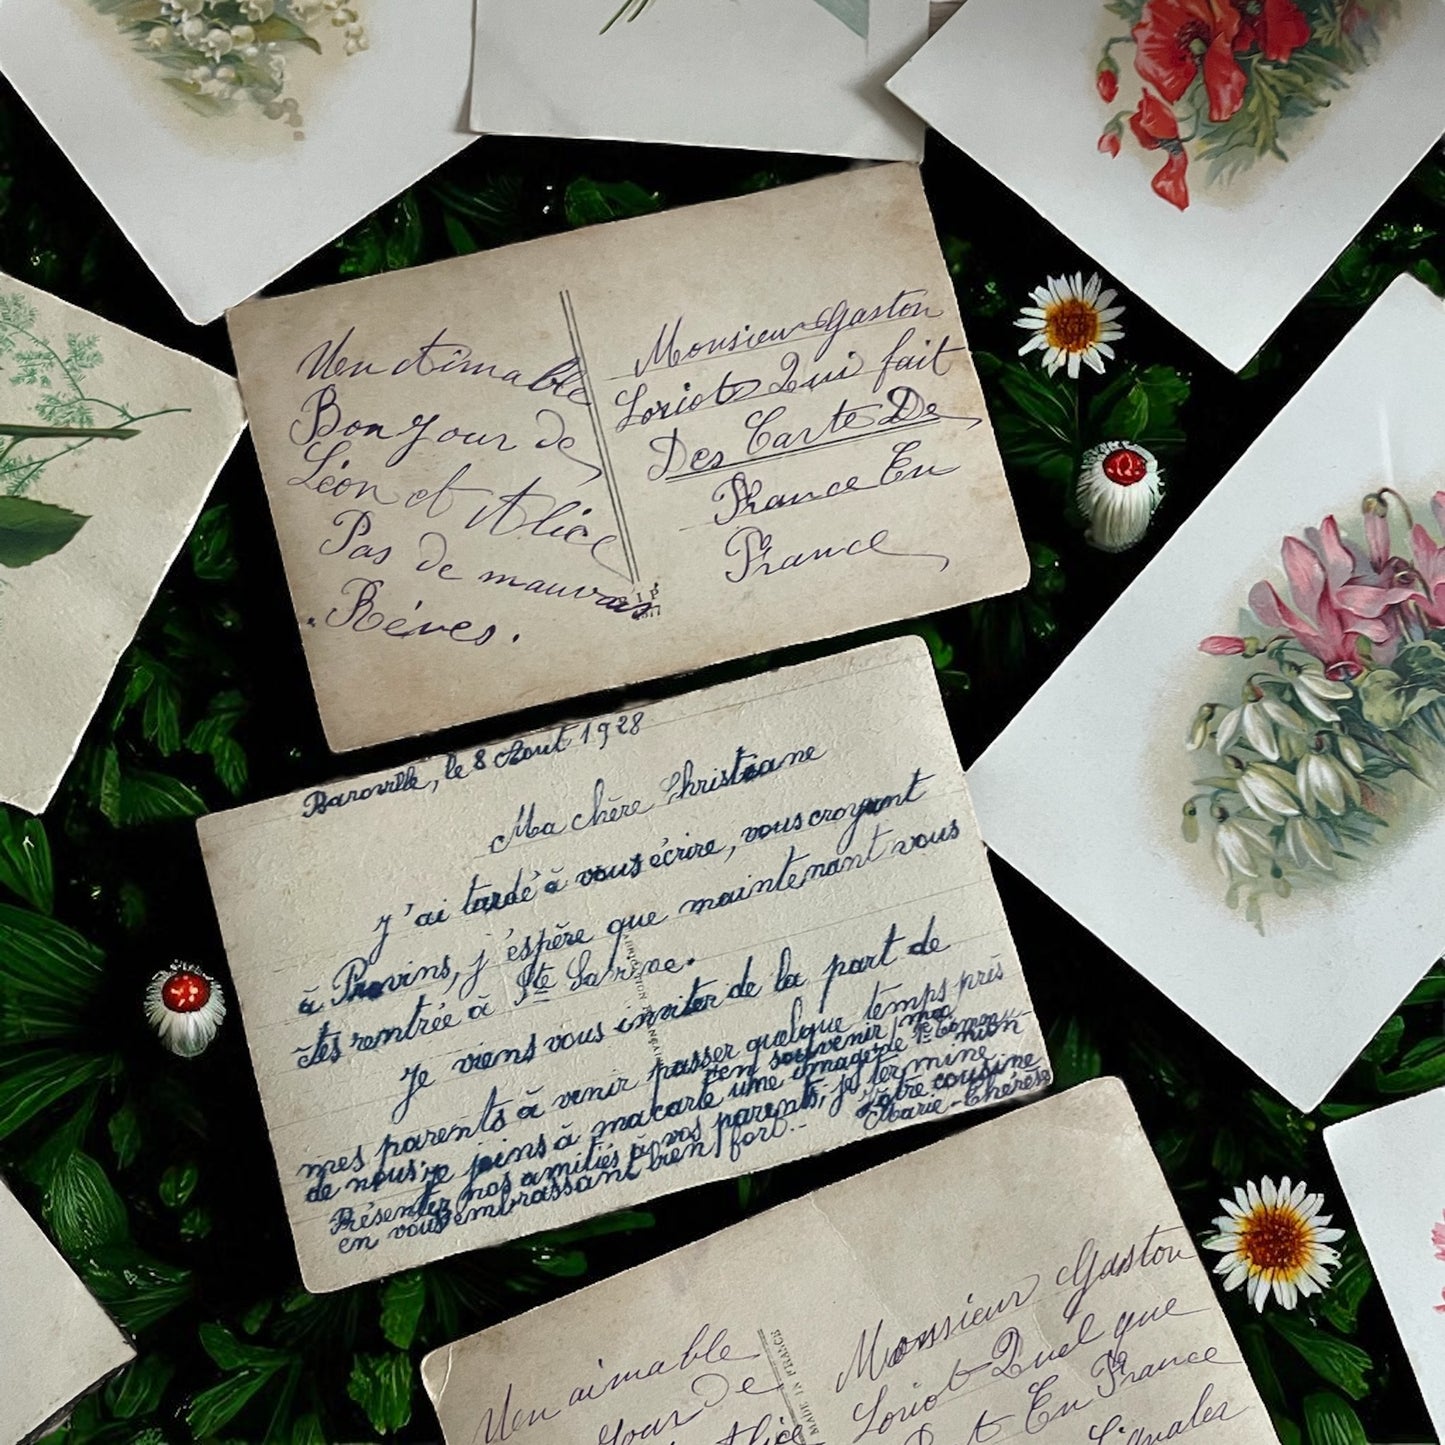 Un Aimable
Bonjour de
Léon et Alice
Pas de mauvais
. Rêves .
Monsieur Gaston
Loriot Qui fait
Des Carte De
France En
France
Baroville, le 8 Aout 1928
Ma chère Christiane
J'ai tardé à vous écrire, vous croyant
à Provins, j'espère que maintenant vous
êtes rentrée à Ste Savine.
Je viens vous inviter de la part de
mes parents à venir passer quelque temps près
de nous; je joins à ma carte une image de 1e Commu-
nion
en souvenir, moi
Présentez nos amitiés à vos parents, je termine
en vous embrassant bien fort.-
Votre cousine
Marie-Thérèse
Un aimable
jour De
Alice
MADE IN FRANCE
Monsieur Gaston
Loriot Quel que
En France